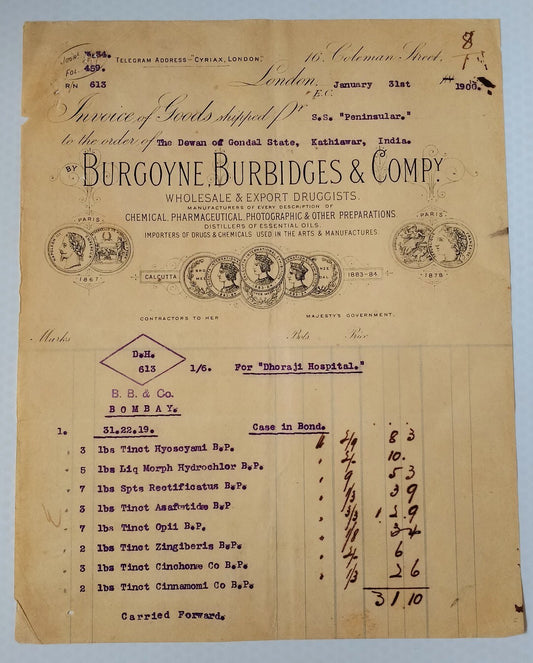 8
3.34.
Fol. 459.
R/N 613
TELEGRAM ADDRESS "CYRIAX, LONDON"
16, Coleman Street,
London, E.C. January 31st 1900.
Invoice of Goods shipped pr S.S. "Peninsular."
to the order of The Dewan of Gondal State, Kathiawar, India.
BY BURGOYNE, BURBIDGES & COMPY.
WHOLESALE & EXPORT DRUGGISTS.
MANUFACTURERS OF EVERY DESCRIPTION OF
CHEMICAL, PHARMACEUTICAL, PHOTOGRAPHIC & OTHER PREPARATIONS
DISTILLERS OF ESSENTIAL OILS.
IMPORTERS OF DRUGS & CHEMICALS USED IN THE ARTS & MANUFACTURES.
PARIS 1867
CALCUTTA 1883-84
PARIS 1878
CONTRACTORS TO HER MAJESTY'S GOVERNMENT.
Marks Bots. Price
D.H.
613 1/6. For "Dhoraji Hospital."
B. B. & Co.
BOMBAY.
1. 31.22.19. Case in Bond.
3 lbs Tinct Hyoscyami B.P. 2/9 8 3
5 lbs Liq Morph Hydrochlor B.P. 10.
7 lbs Spts Rectificatus B.P. 9 5 3
3 lbs Tinct Asafœtidæ B.P 1/3 3 9
7 lbs Tinct Opii B.P. 3/3 1 2 9
2 lbs Tinct Zingiberis B.P. 1/8 3 4
3 lbs Tinct Cinchonæ Co B.P. 6
2 lbs Tinct Cinnamomi Co B.P. 1/3 2 6
Carried Forward. 3 1 10